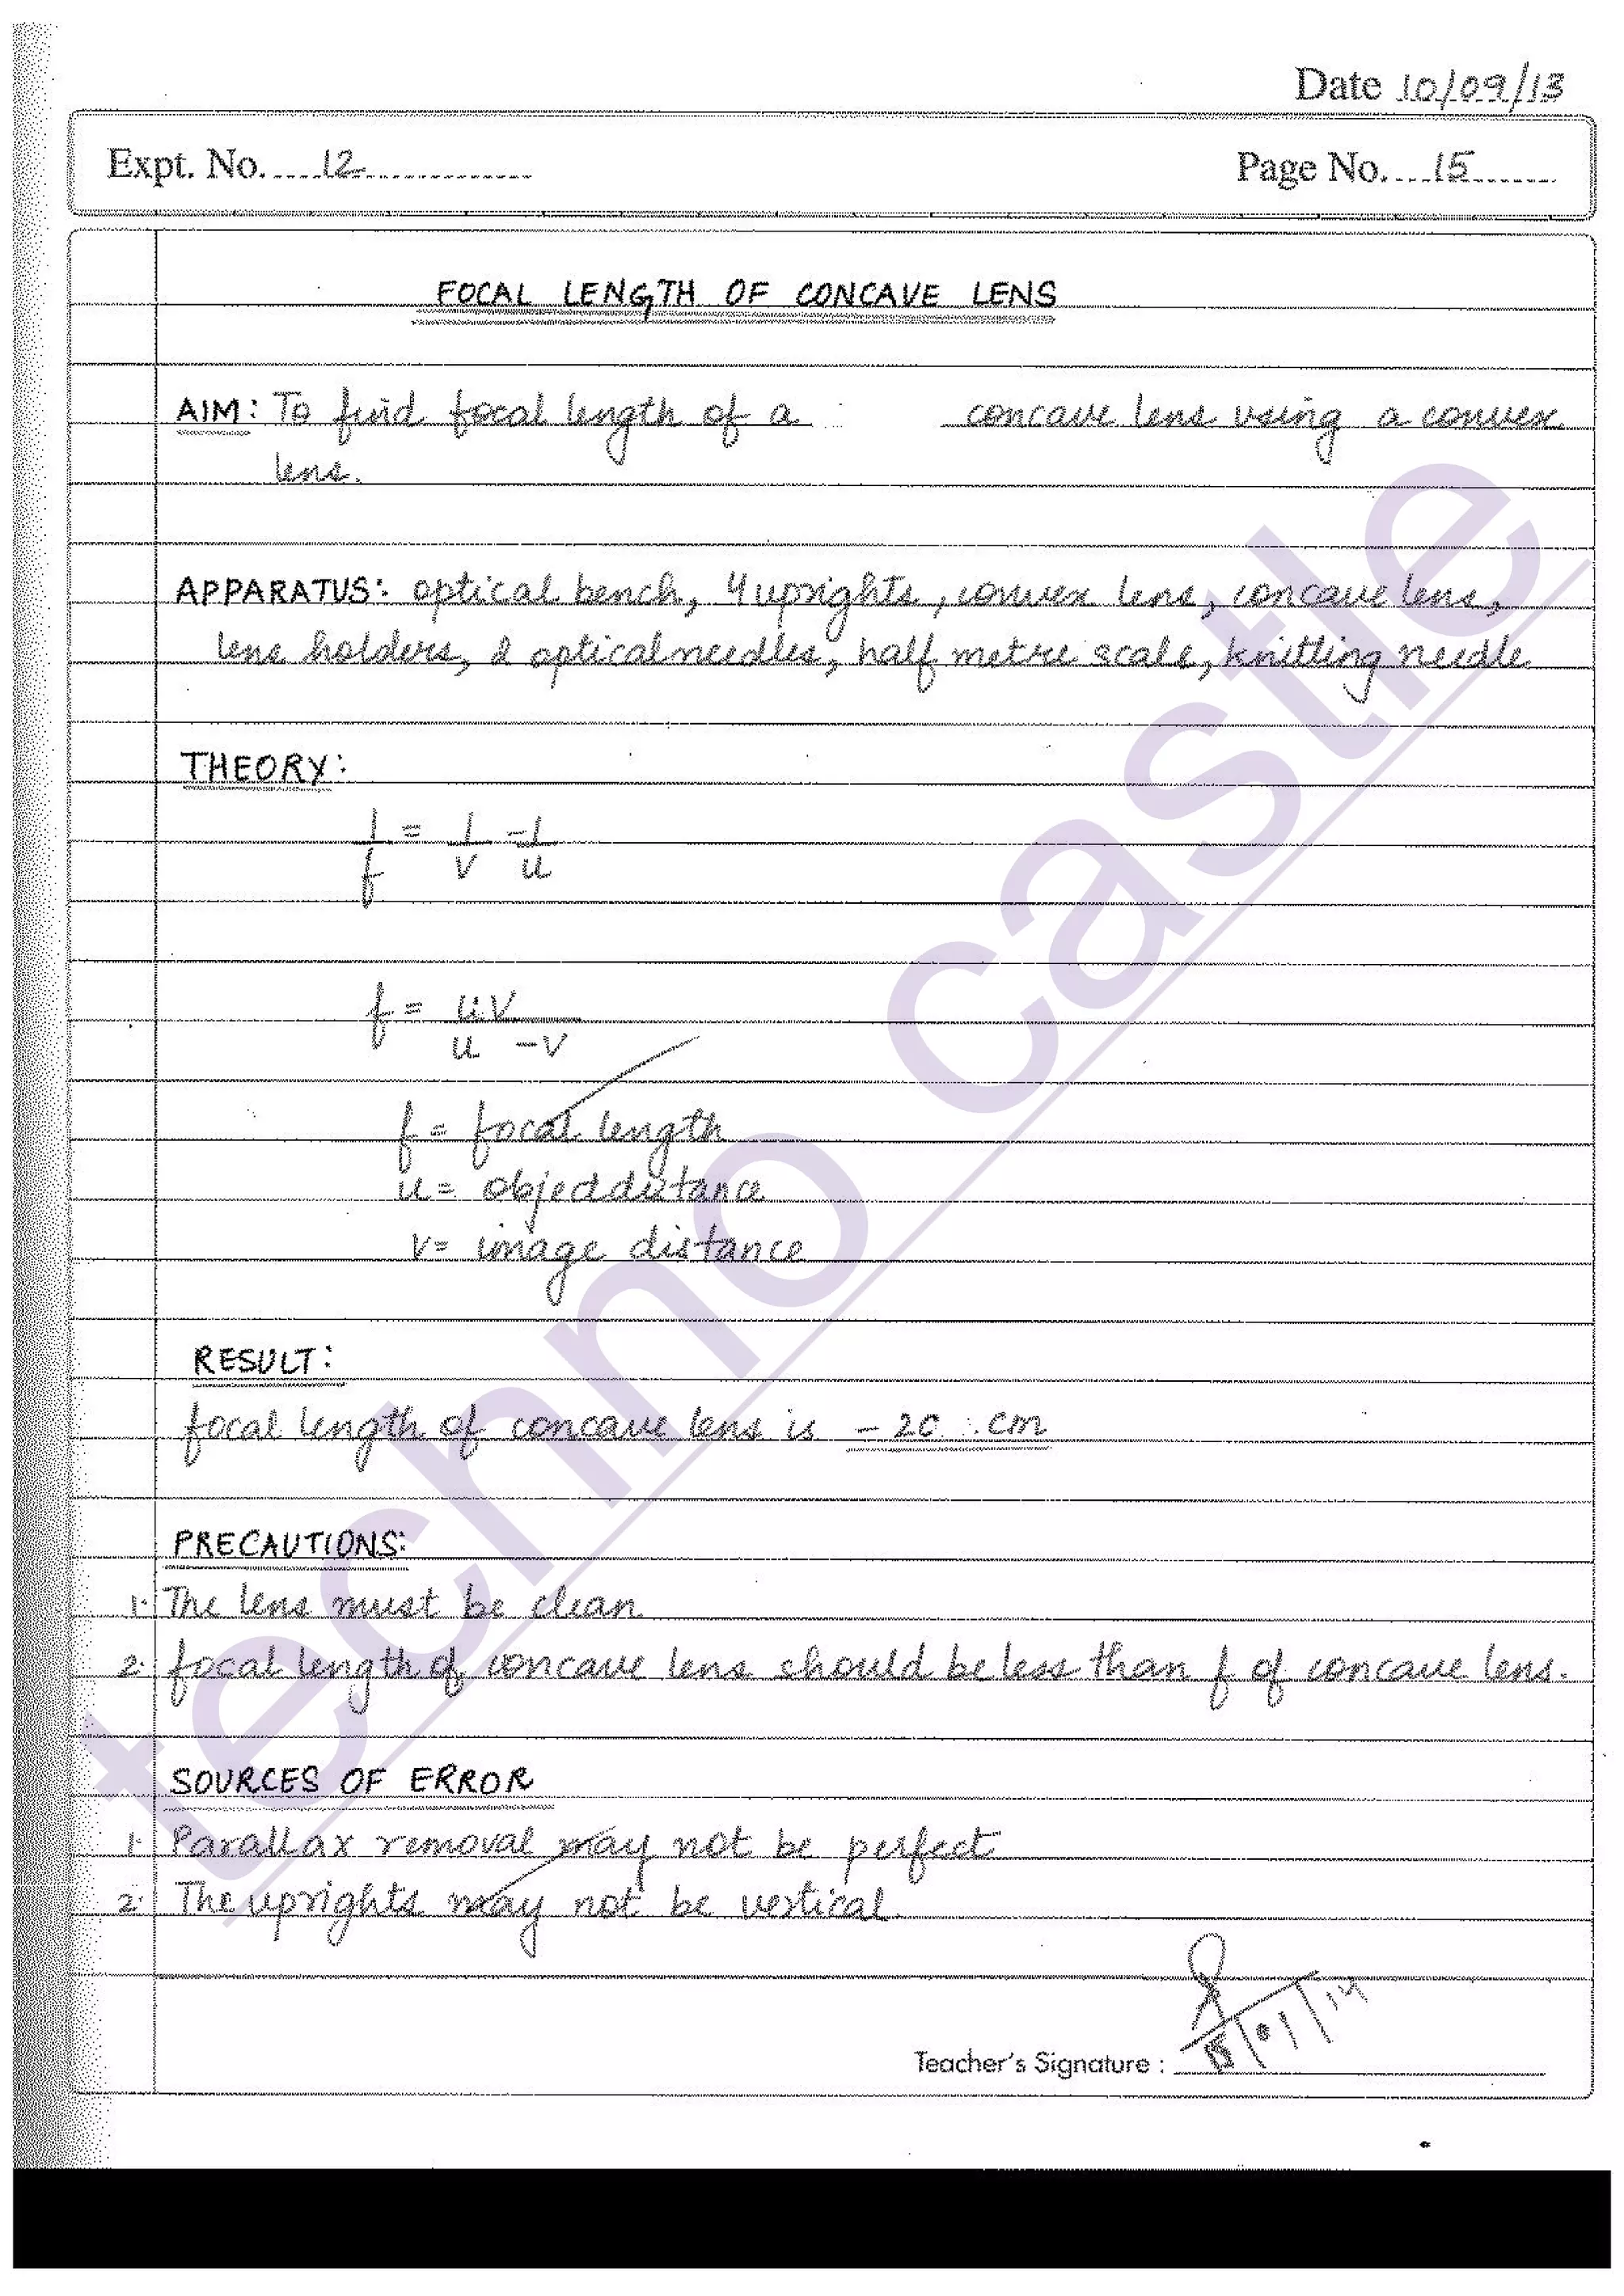 Date 10/09/13
Expt. No. 12
Page No. 15
FOCAL LENGTH OF CONCAVE LENS
AIM: To find focal length of a concave lens using a convex
lens.
APPARATUS: optical bench, 4 uprights, convex lens, concave lens,
lens holders, 2 optical needles, half metre scale, knitting needle
THEORY:
1/f = 1/v - 1/u
f = uv / u - v
f = focal length
u = object distance
v = image distance
RESULT:
focal length of concave lens is - 20 cm
PRECAUTIONS:
1. The lens must be clean
2. focal length of concave lens should be less than f of concave lens.
SOURCES OF ERROR
1. Parallax removal may not be perfect
2. The uprights may not be vertical.
Teacher's Signature :
techno castle